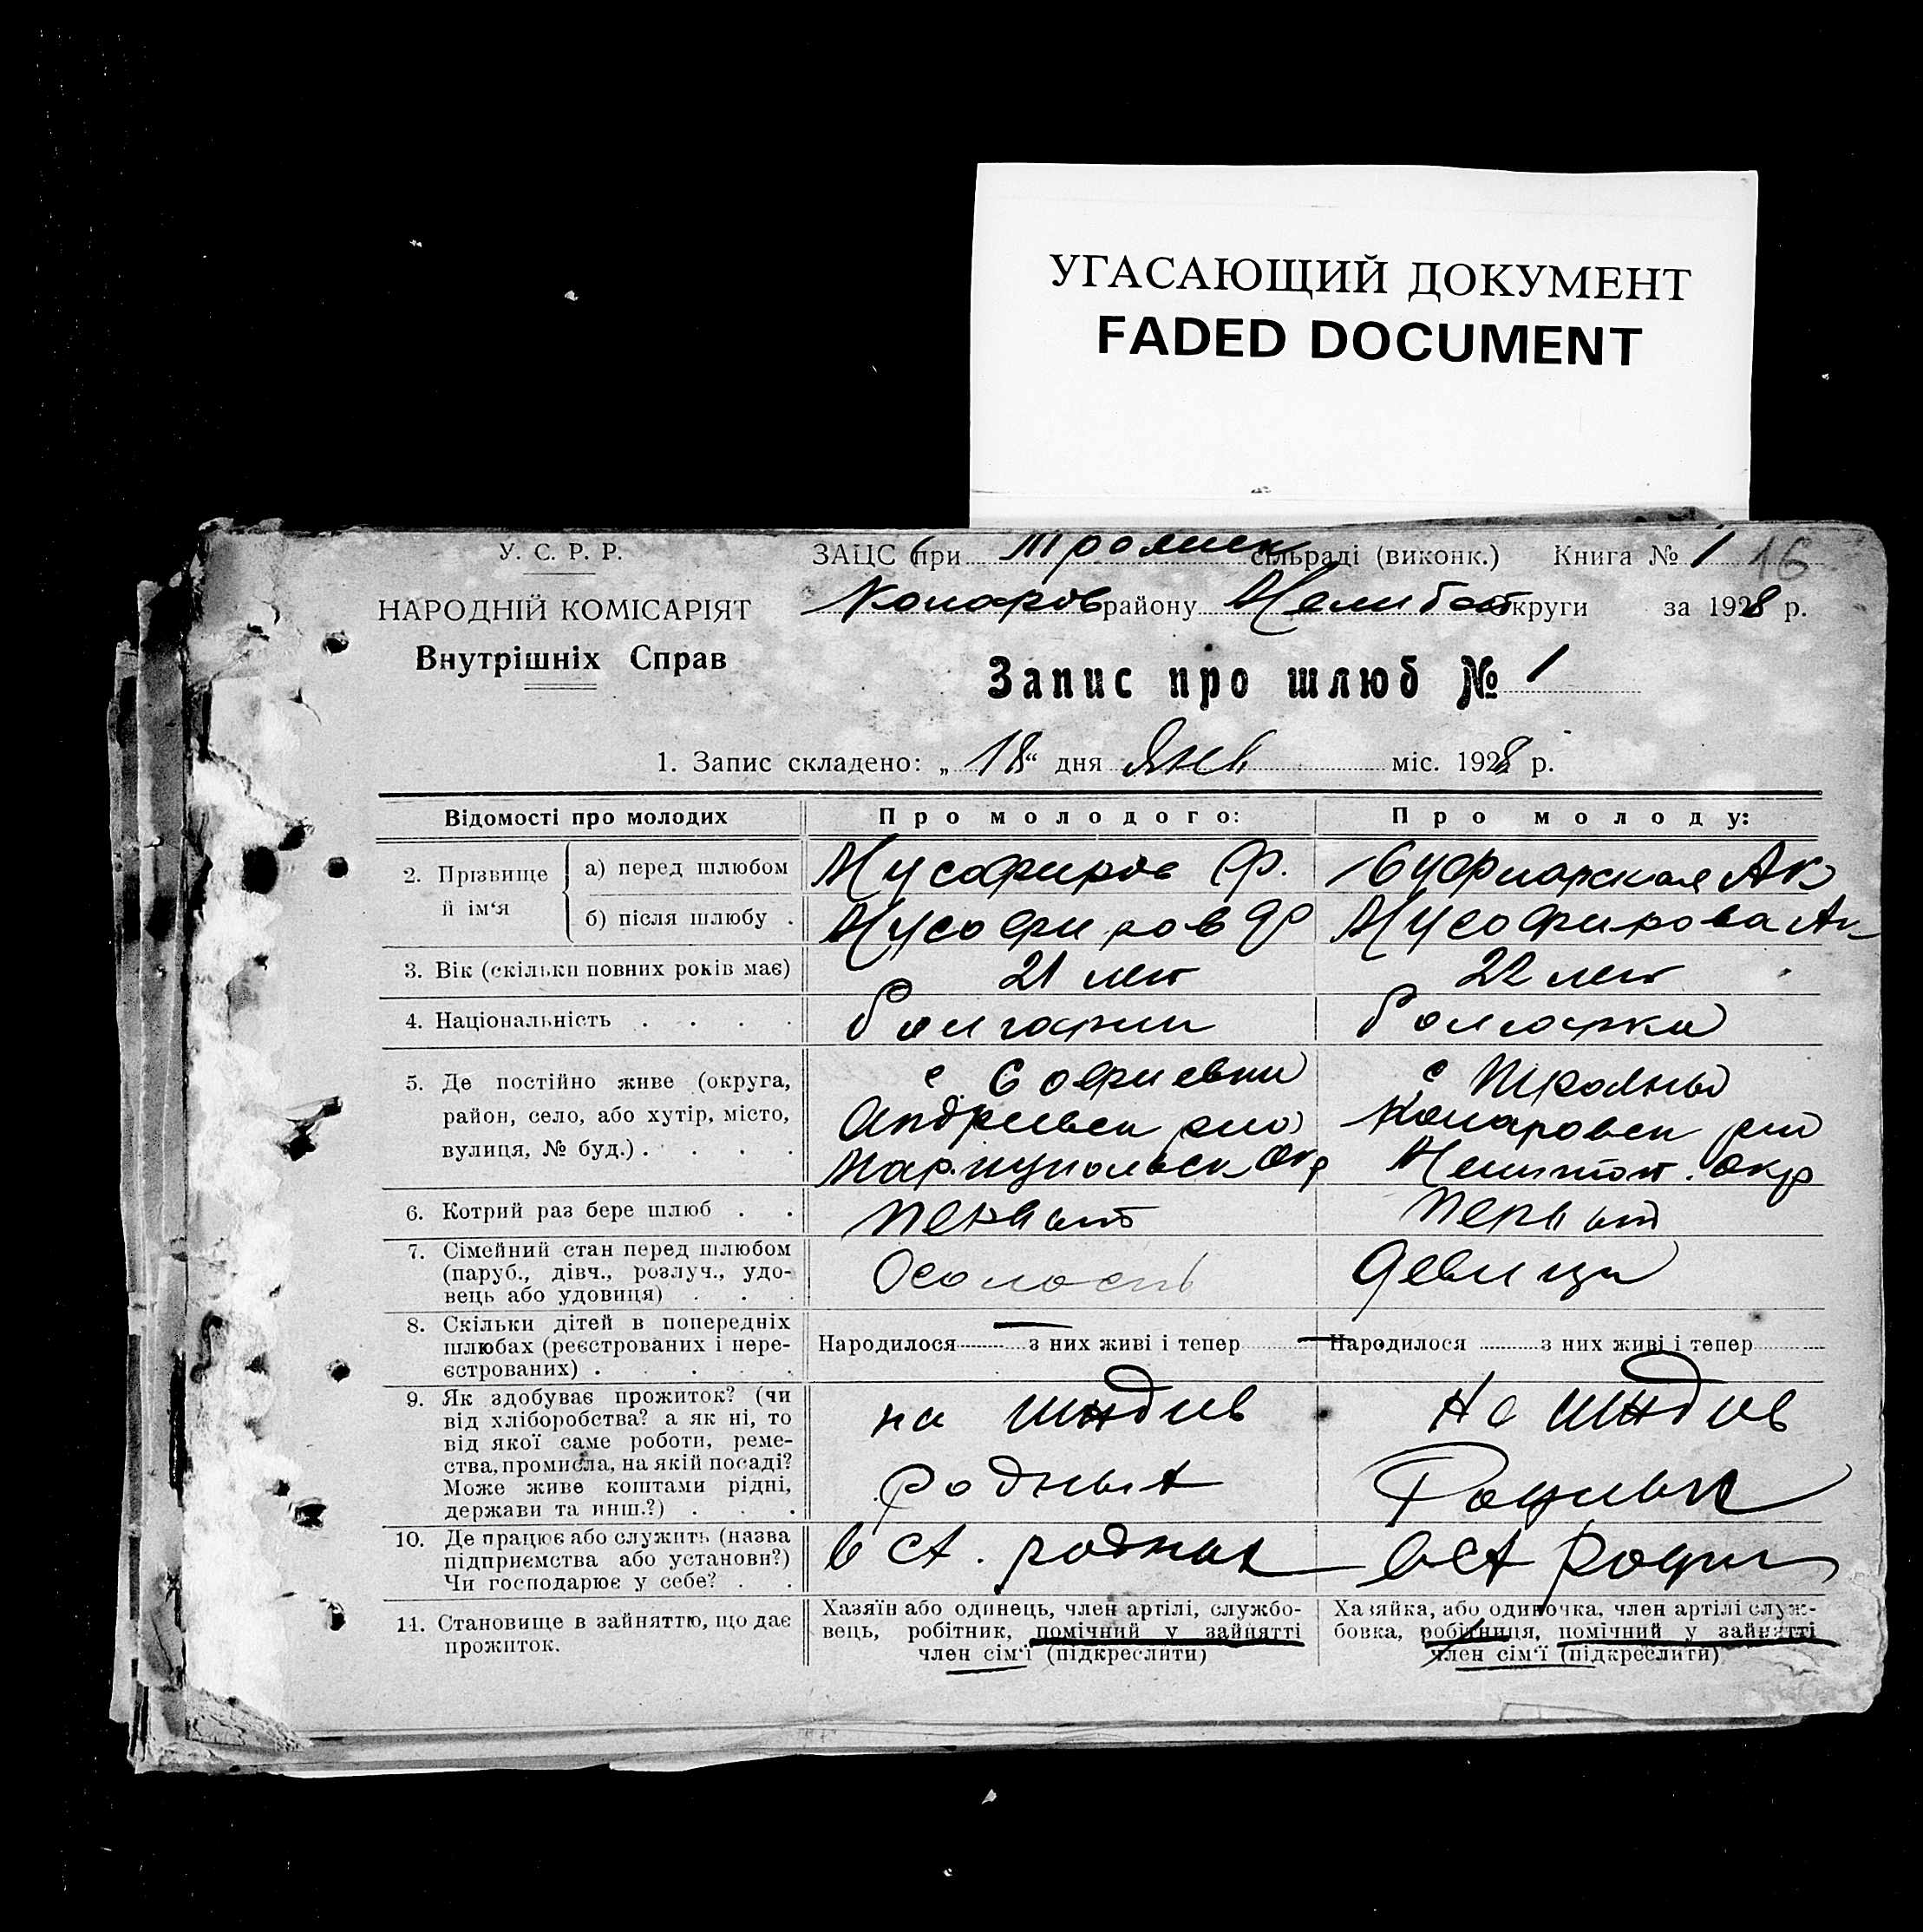 УГАСАЮЩИЙ ДОКУМЕНТ
FADED DOCUMENT
У. С. Р. Р.
НАРОДНІЙ КОМІСАРІЯТ
Внутрішніх Справ
ЗАЦС при Троянск сільраді (виконк.) Книга № 1 16
району округи за 1928 р.
Запис про шлюб № 1
1. Запис складено: „ 18 “ дня Янв міс. 1928 р.
Відомості про молодих
Про молодого:
Про молоду:
2. Прізвище й ім‘я
а) перед шлюбом
Мусафиров Ф.
Ак
б) після шлюбу .
Мусофиров Ф
Мусофирова Ак
3. Вік (скільки повних років має)
21 лет
22 лет
4. Національність . . . .
болгарин
болгарка
5. Де постійно живе (округа,
район, село, або хутір, місто,
вулиця, № буд.) . . . .
с Софиевки
Андреевск
Мариупольск Окр
с Трояны
Мелитоп. окр
6. Котрий раз бере шлюб . .
первый
первый
7. Сімейний стан перед шлюбом
(паруб., дівч., розлуч., удо-
вець або удовиця) . . .
холость
девица
8. Скільки дітей в попередніх
шлюбах (реєстрованих і нере-
єстрованих) . . . . .
Народилося ......... з них живі і тепер
Народилося ......... з них живі і тепер
9. Як здобуває прожиток? (чи
від хліборобства? а як ні, то
від якої саме роботи, реме-
ства, промисла, на якій посаді?
Може живе коштами рідні,
держави та инш.?) . . .
на иждив
родных
на иждив
10. Де працює або служить (назва
підприємства або установи?)
Чи господарює у себе? . .
в ст. родных
в ст
11. Становище в зайняттю, що дає
прожиток.
Хазяїн або одинець, член артілі, службо-
вець, робітник, помічний у зайнятті
член сім‘ї (підкреслити)
Хазяйка, або одиночка, член артілі служ-
бовка, робітниця, помічний у зайнятті
член сім‘ї (підкреслити)